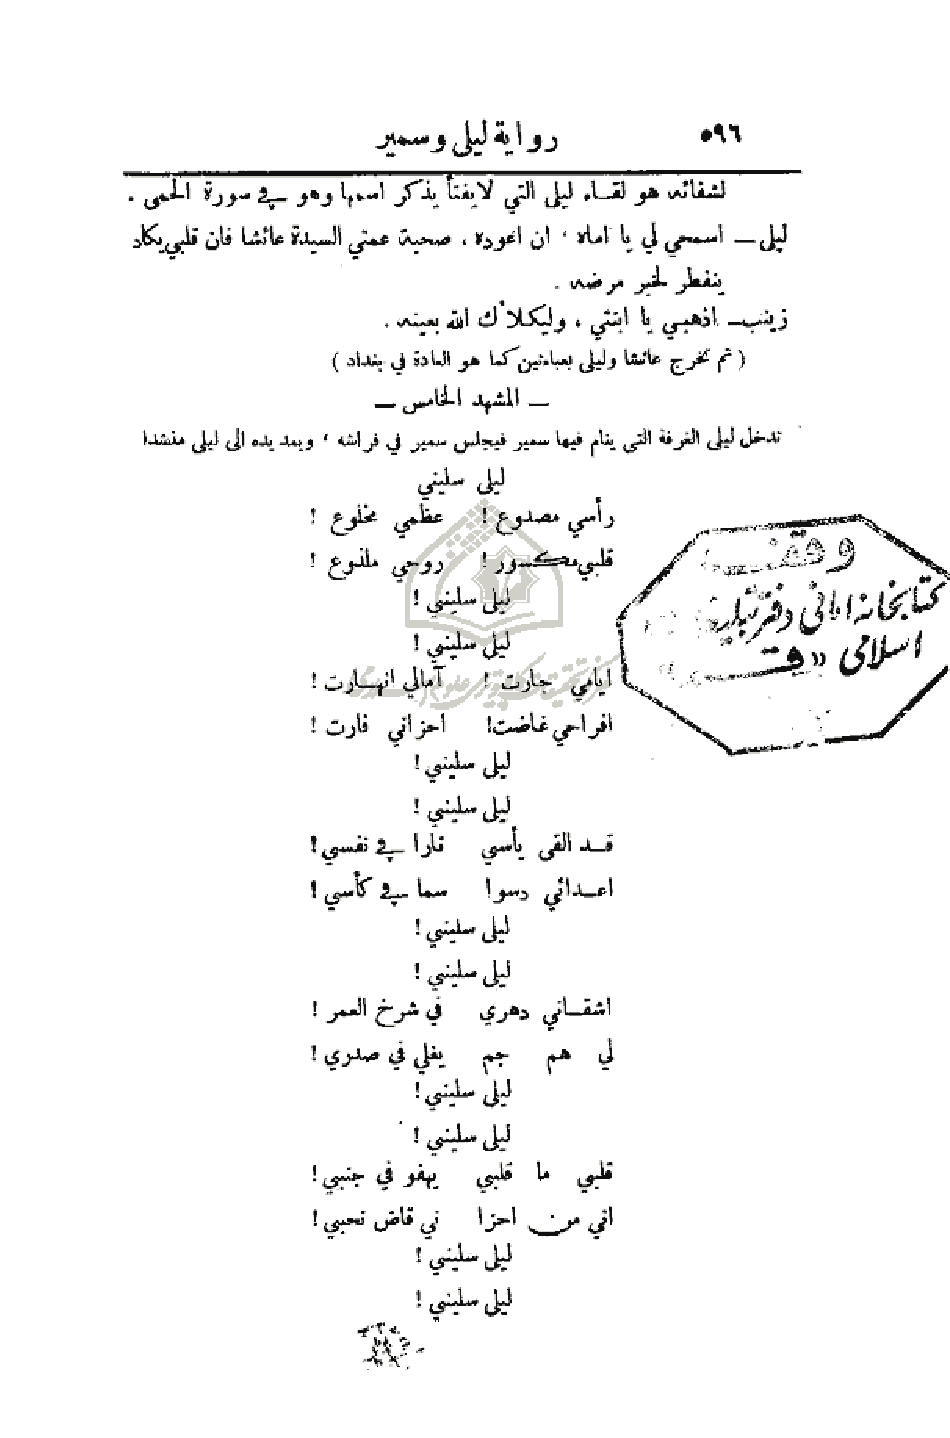 ٥٩٦ رواية ليلى وسمير
لشفائه هو لقاء ليلى التي لايفتأ يذكر اسمها وهو في سورة الحمى .
ليلى ــ اسمحي لي يا اماه ، ان اعوده ، صحبة عمتي السيدة عائشا فان قلبي يكاد
ينفطر لخبر مرضه .
زينب ــ اذهبي يا ابنتي ، وليكلأك الله بعينه .
( ثم تخرج عائشا وليلى بعباءتين كما هو العادة في بغداد )
ــ المشهد الخامس ــ
تدخل ليلى الغرفة التي ينام فيها سمير فيجلس سمير في فراشه ، ويمد يده الى ليلى منشدا
ليلى سليني
رأسي مصدوع ! عظمي مخلوع !
قلبي مكسور ! روحي ملذوع !
ليلى سليني !
ليلى سليني !
ايامي جارت ! آمالي انهارت !
افراحي غاضت ! احزاني فارت !
ليلى سليني !
ليلى سليني !
قد القى يأسي نارا في نفسي !
اعدائي دسوا ! سما في كأسي !
ليلى سليني !
ليلى سليني !
اشقاني دهري في شرخ العمر !
لي هم جم يغلي في صدري !
ليلى سليني !
ليلى سليني !
قلبي ما قلبي يهفو في جنبي !
اني من احزا ني قاض نحبي !
ليلى سليني !
ليلى سليني !
وقف
كتابخانه اماني دفتر تبليغات
اسلامى «قم»